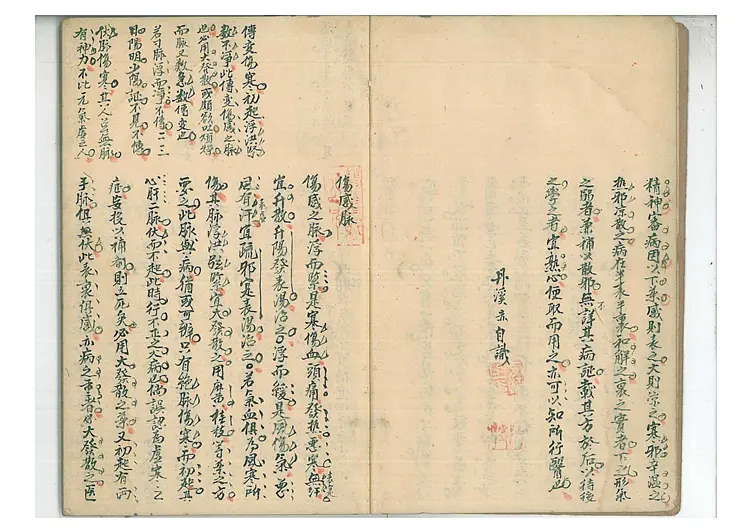 精神審病因以下藥感則表之火則涼之寒邪辛温之
熱邪凉散之病在半表半裏和解之裏之實者下之形氣
之弱者兼補以散邪無不詳其病証載其方於后以待後
之學之者宜熟心便取而用之亦可以知所行醫也
丹溪亦自識
傷感脉
傷感之脉浮而緊是寒傷血頭痛發熱惡寒無汗
宜升散升陽發表湯治之浮而緩是風傷氣惡
風有汗宜疏邪實表湯治之若氣血俱為風寒所
傷其脉浮洪弦緊宜大發散之用麻黄桂枝等藥之方
要之此脉與病猶或可辨只有絶脉傷寒而初起其
心肝二脉伏而不起此時行不正之大病也倘誤認為虚寒之
症妄投以補劑則立死矣必用大發散之藥又初起有兩
手脉俱無伏此表裏俱感之病之重者以大發散之医
傳變傷寒初起浮洪緊
數不寧此傳變傷感之脉
也必用大發散或頗欲吐煩燥
而脉又數急數傳変也
若寸脉浮而淨不傳二三
日陽明少陽証不見不傳
伏脉傷寒其人
有神力不比元氣虚之人